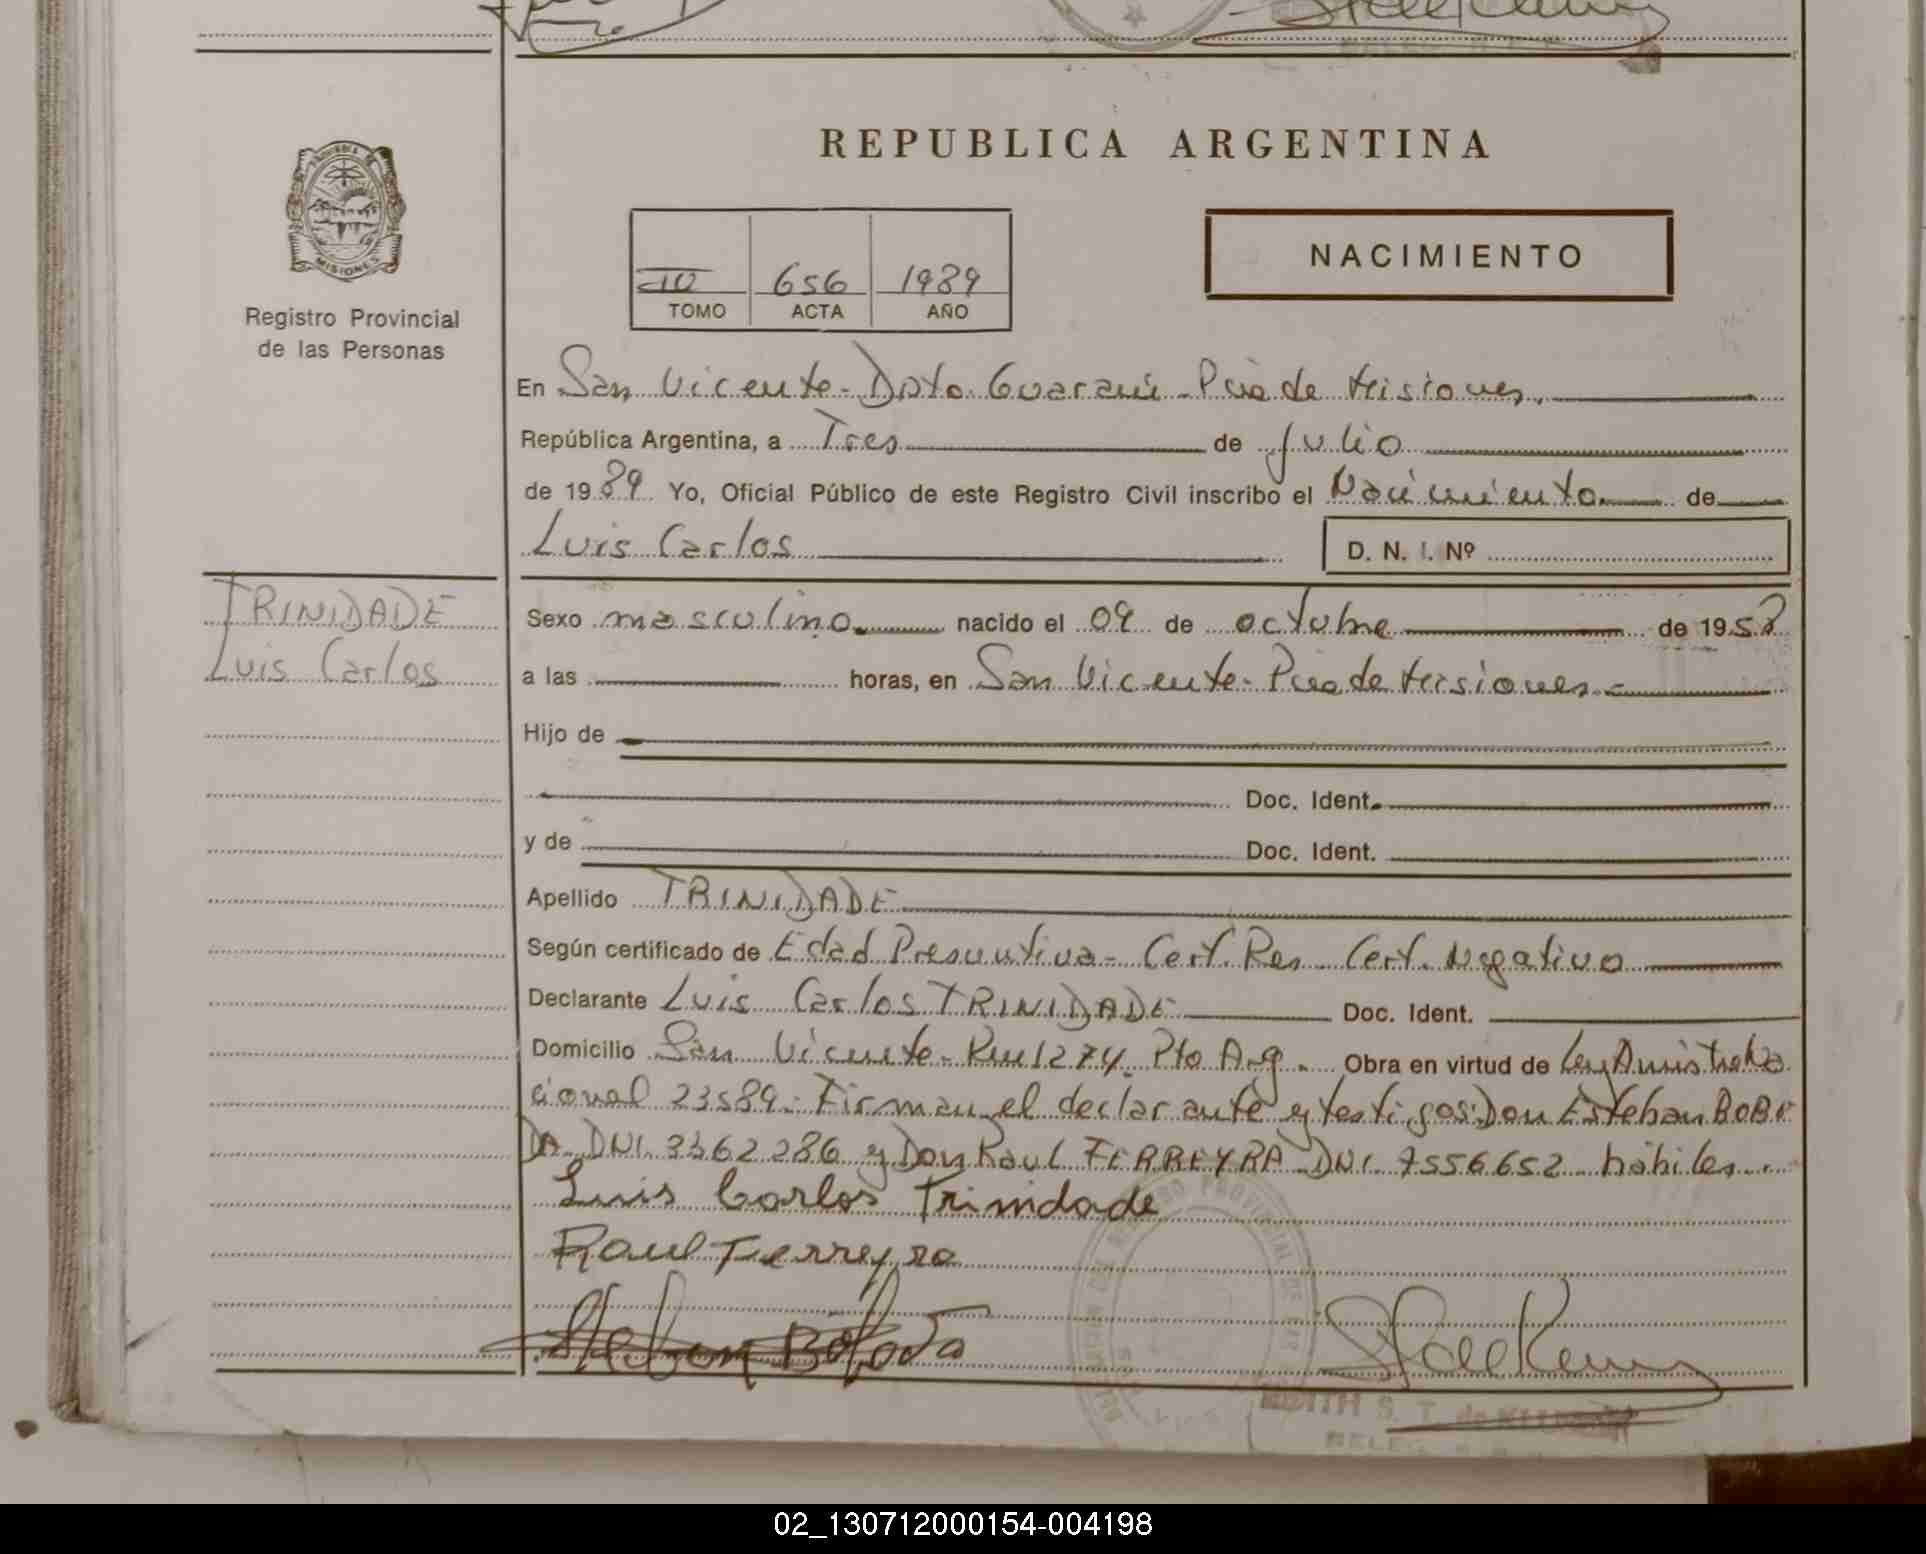 REPUBLICA ARGENTINA
PROVINCIA DE
MISIONES
Registro Provincial
de las Personas
656 1989
TOMO ACTA AÑO
NACIMIENTO
En San Vicente - Dpto. Guaraní - Pcia de Misiones.
República Argentina, a Tres de Julio
de 1989 Yo, Oficial Público de este Registro Civil inscribo el Nacimiento de
Luis Carlos
D. N. I. Nº
TRINIDADE
Luis Carlos
Sexo masculino. nacido el 09 de octubre de 195
a las horas, en San Vicente - Pcia de Misiones.-
Hijo de
Doc. Ident.
y de Doc. Ident.
Apellido TRINIDADE
Según certificado de Edad Presuntiva - Cert. Res. Cert. Negativo
Declarante Luis Carlos TRINIDADE Doc. Ident.
Domicilio San Vicente - Km 1274. Pto Arg. Obra en virtud de Ley
cional 23589. Firman el declarante y testigos: Don Esteban BOBE
DA DNI. 3362286 y Don Raul FERREYRA DNI. 7556652 hábiles.
Luis Carlos Trinidade
Raul Ferreyra
Esteban Boboda
EDITH S. T. de
02_130712000154-004198